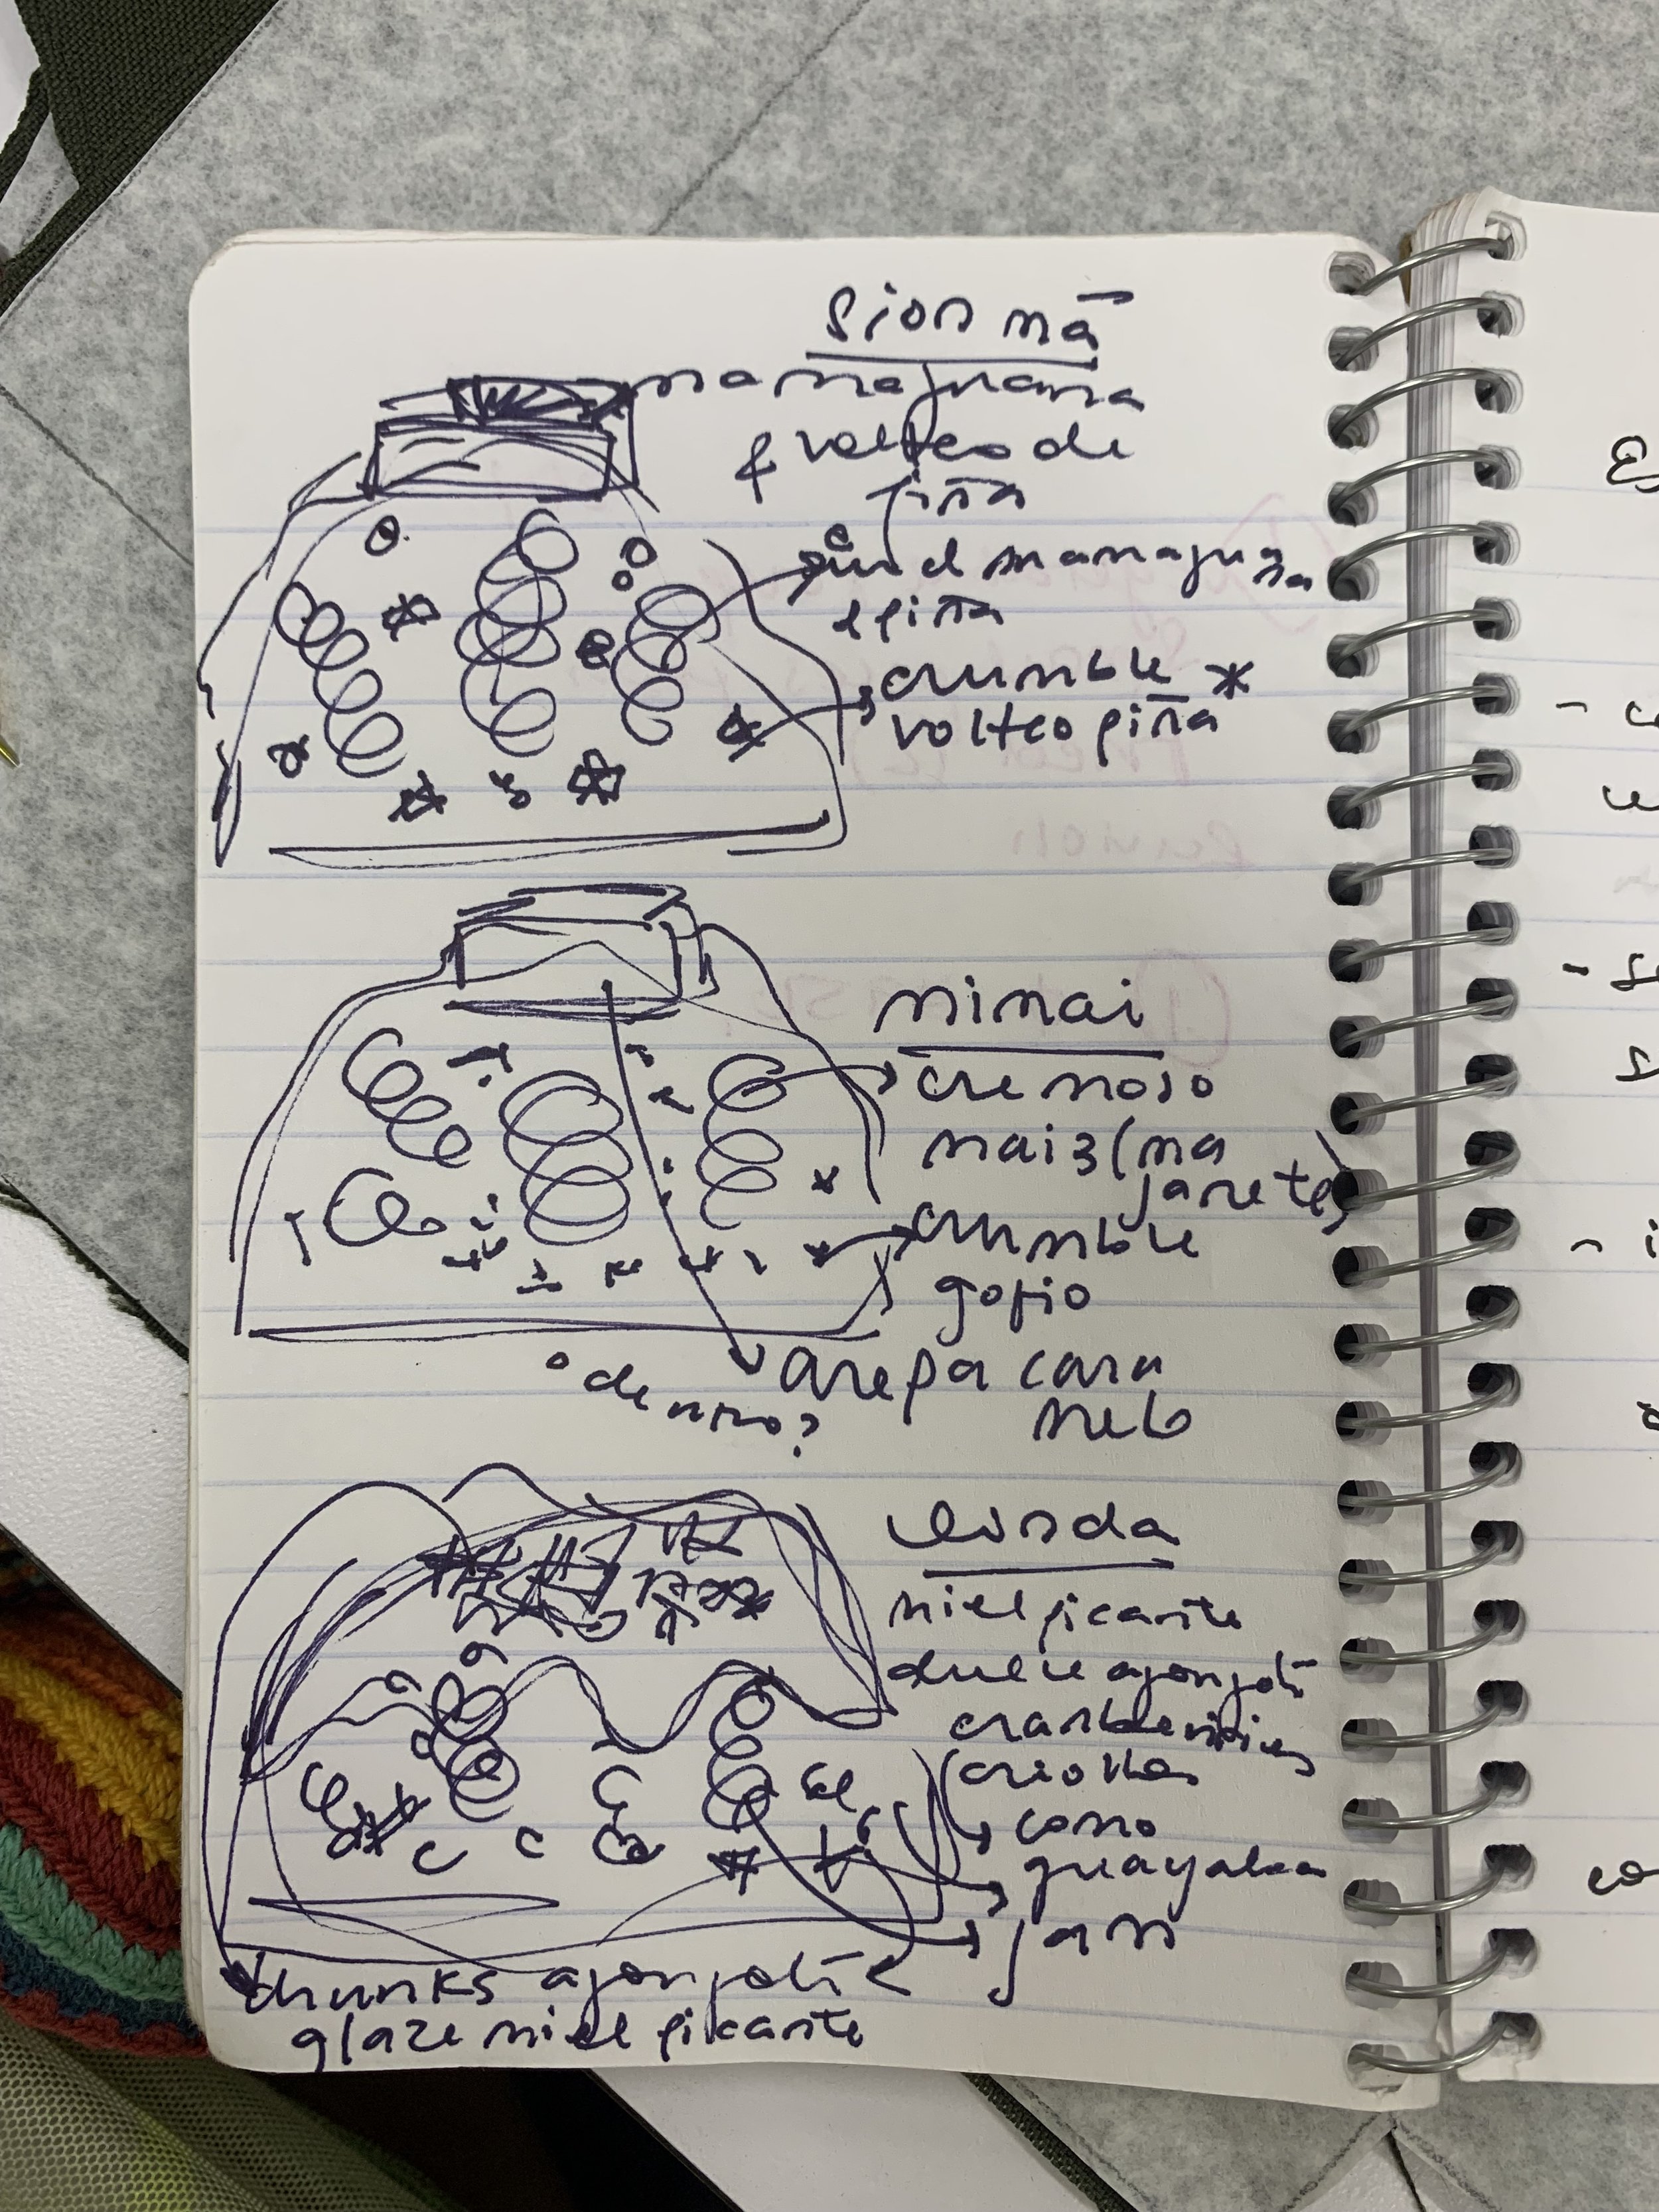 Sionmā
mamajuana
& volteo de
piña
mamajuana
piña
crumble *
volteo piña
mimai
cremoso
maiz (ma
jarete)
crumble
gofio
arepa cara
melo
° dentro?
Linda
miel picante
dulce ajonjolí
cranberries
criollas
como
guayaba
jam
chunks ajonjolí
glaze miel picante